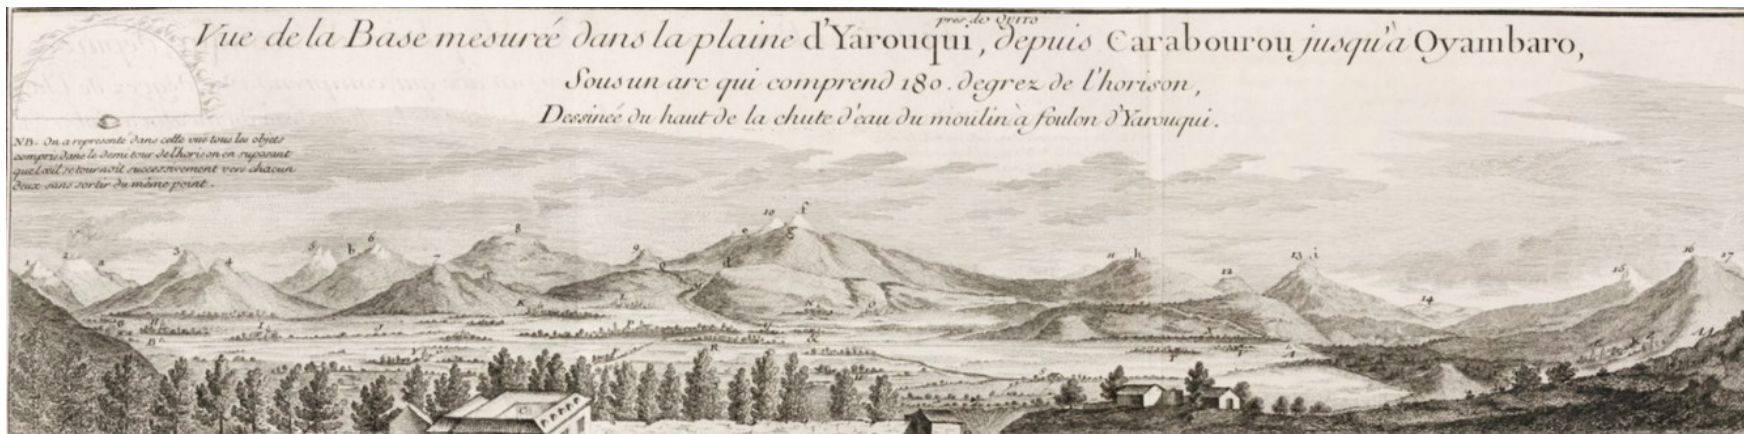 près de Quito
Vue de la Base mesurée dans la plaine d'Yarouqui, depuis Carabourou jusqu'à Oyambaro,
Sous un arc qui comprend 180. degrez de l'horison,
Dessinée du haut de la chute d'eau du moulin à foulon d'Yarouqui.
NB. On a representé dans cette vuë tous les objets
compris dans le demi tour de l'horison en suposant
que l'œil se tournoit successivement vers chacun
deux sans sortir du même point.
10 f
8 e g
5 b 6 9 11 h 13 i 16 17
1 2 3 4 7 d 12 15
14
K L N O
H I P
R
C